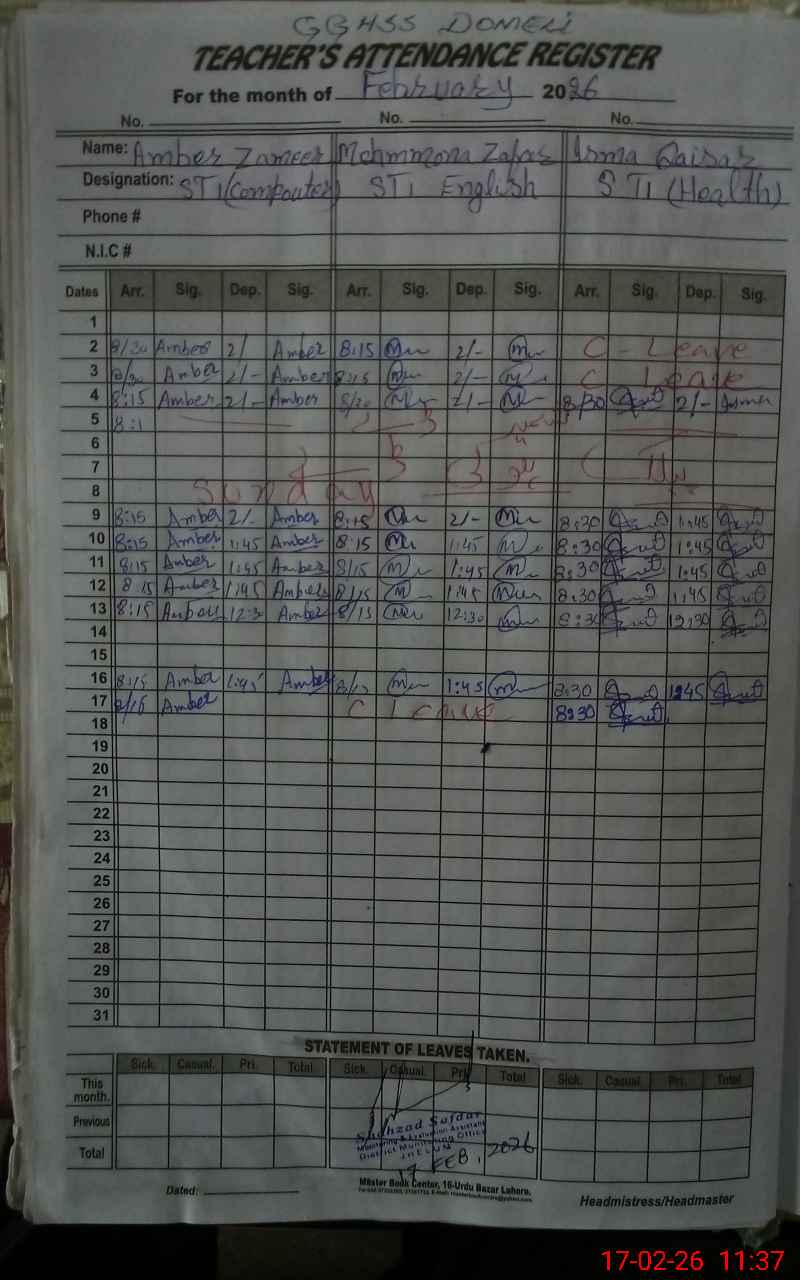 GGHSS DOMELI
TEACHER'S ATTENDANCE REGISTER
For the month of February 2026
No. No. No.
Name: Amber Zameer Mehmmona Zafar Asma Qaisar
Designation: STI (Computer) STI English STI (Health)
Phone #
N.I.C #
Dates Arr. Sig. Dep. Sig. Arr. Sig. Dep. Sig. Arr. Sig. Dep. Sig.
1
2 8/30 Amber 2/ Amber 8:15 2/- C - Leave
3 8/30 Amber 2/- Amber 8:15 2/- C Leave
4 8:15 Amber 2/- Amber 8/30 2/- 8/30 2/- Asma
5 8:1
6
7
8 Sunday
9 8:15 Amber 2/- Amber 8:15 2/- 8:30 1:45
10 8:15 Amber 1:45 Amber 8:15 1:45 8:30 1:45
11 8/15 Amber 1:45 Amber 8/15 1:45 8:30 1:45
12 8:15 Amber 1:45 Amber 8/15 1:45 8:30 1:45
13 8:15 Amber 12:3 Amber 8/15 12:30 8:30 12:30
14
15
16 8/15 Amber 1:45 Amber 8/15 1:45 8:30 1:45
17 8/15 Amber C Leave 8:30
18
19
20
21
22
23
24
25
26
27
28
29
30
31
STATEMENT OF LEAVES TAKEN.
Sick. Casual. Pri. Total Sick. Casual. Pri. Total Sick. Casual. Pri. Total
This month.
Previous
Total
Shahzad Safdar
Monitoring & Evaluation Assistant
District Monitoring Office
JHELUM
17 FEB, 2026
Dated:
Master Book Center, 16-Urdu Bazar Lahore.
Headmistress/Headmaster
17-02-26 11:37